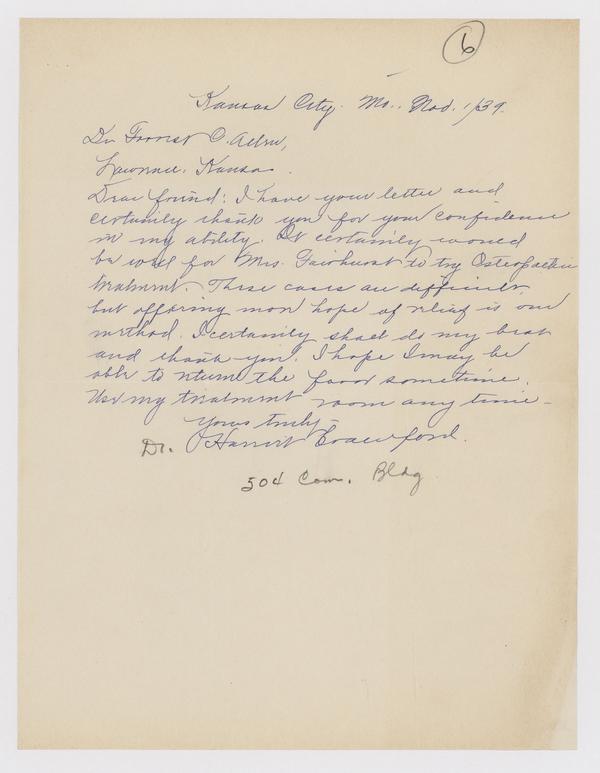 6
Kansas City. Mo., Nov. 1/39.
Dr Forrest C. Allen,
Lawrence, Kansas.
Dear friend: I have your letter and
certainly thank you for your confidence
in my ability. It certainly would
be well for Mrs. to try Osteopathic
treatment. These cases are difficult,
but offering more hope of relief is our
method. I certainly shall do my best
and thank you. I hope I may be
able to return the favor sometime.
Use my treatment room any time—
Yours truly—
Dr. Harriet Crawford.
504 Com. Bldg